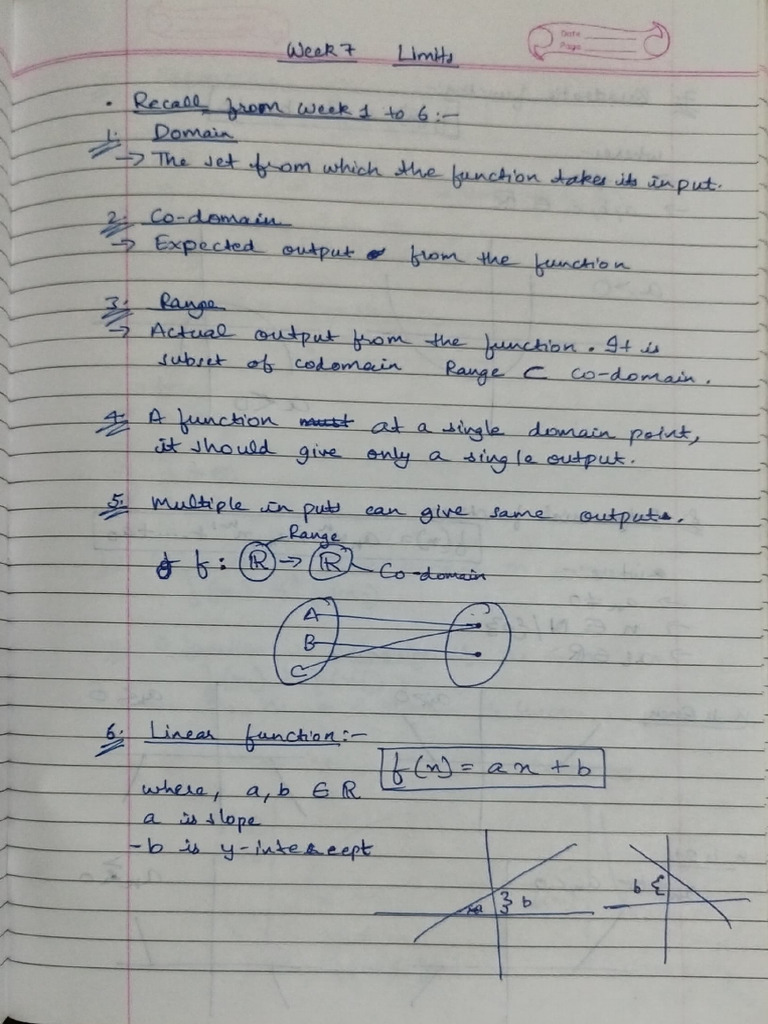 Date
Page
Week 7 Limits
• Recall from Week 1 to 6 :-
1. Domain
→ The set from which the function takes its input.
2. Co-domain
→ Expected output from the function
3. Range
→ Actual output from the function. It is
subset of codomain Range ⊂ co-domain.
4. A function must at a single domain point,
it should give only a single output.
5. Multiple in puts can give same outputs.
Range
f : ℝ → ℝ Co-domain
A
B
C
6. Linear function :-
f(x) = ax + b
where, a, b ∈ ℝ
a is slope
- b is y-intercept
b
b